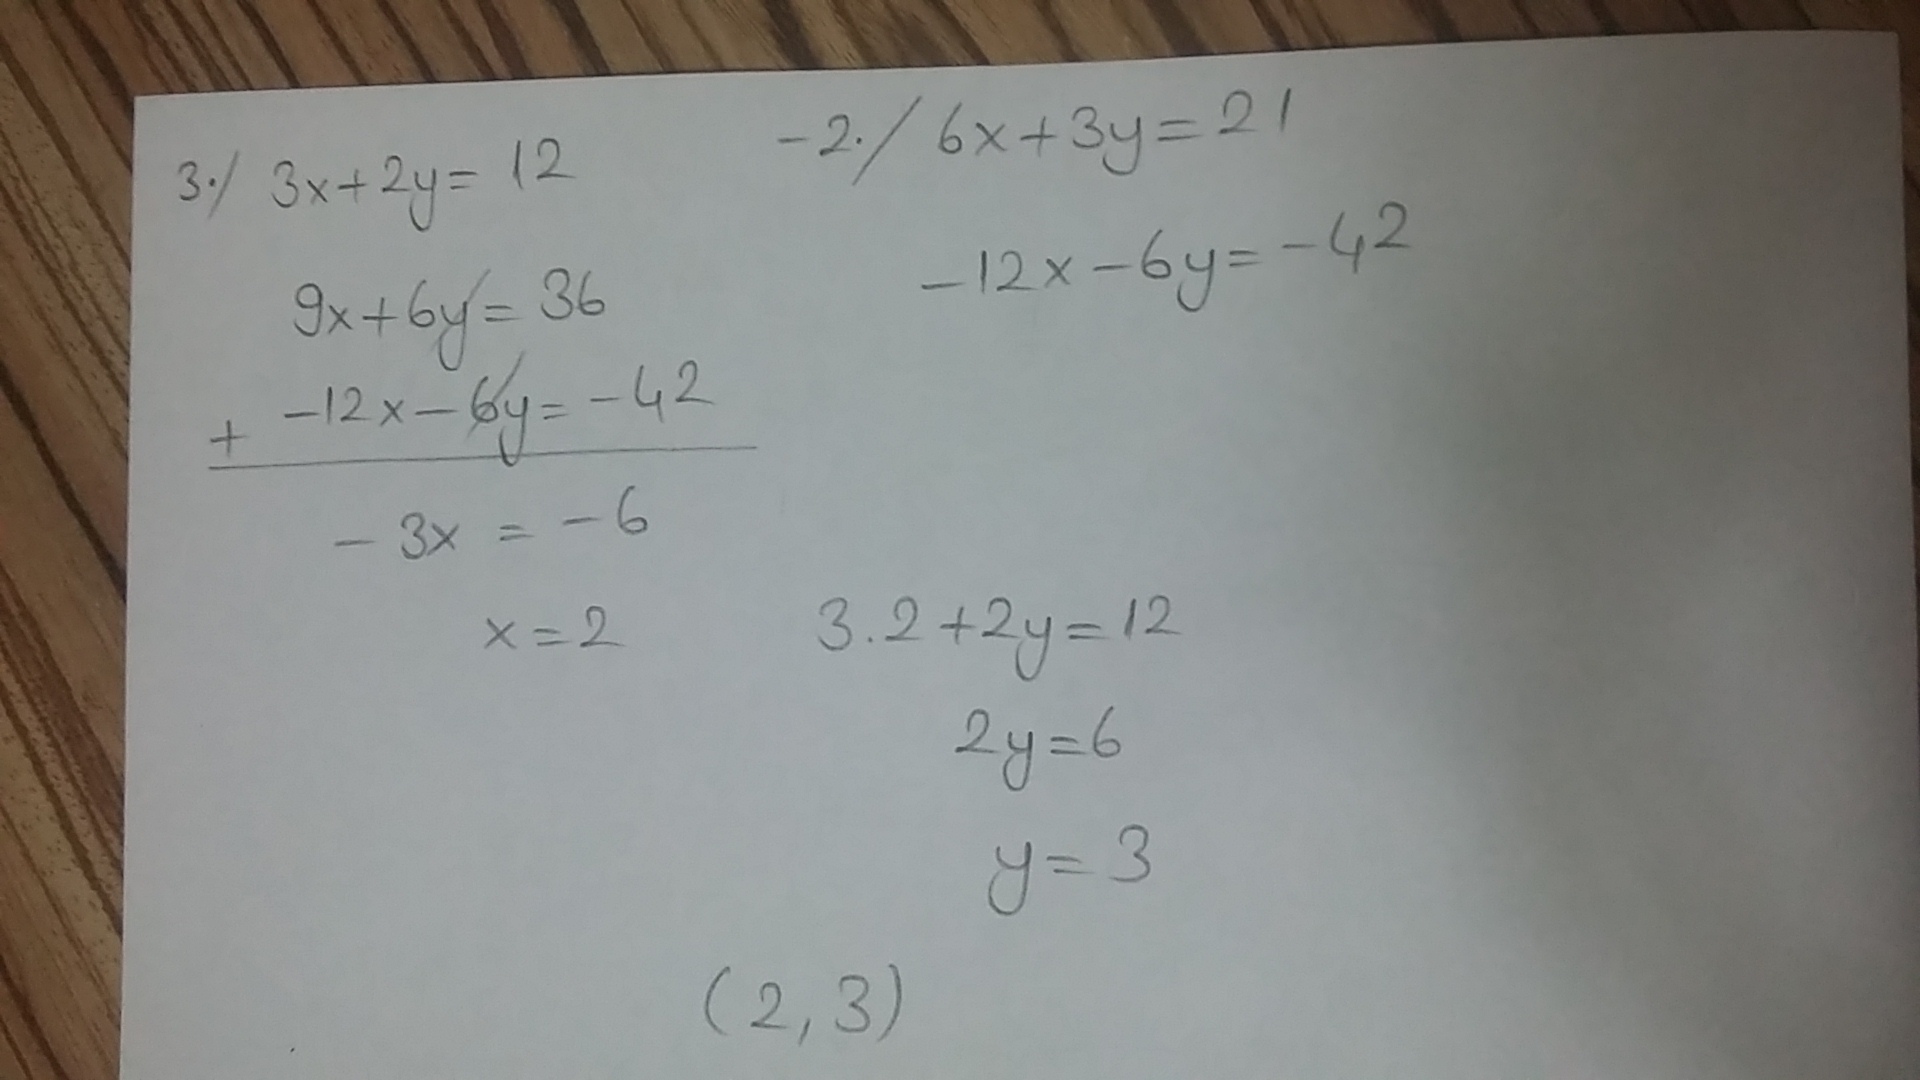 3./ 3x+2y= 12
-2./ 6x+3y=21
9x+6y= 36
-12x-6y=-42
+ -12x-6y=-42
-3x = -6
x=2
3.2+2y=12
2y=6
y=3
(2,3)